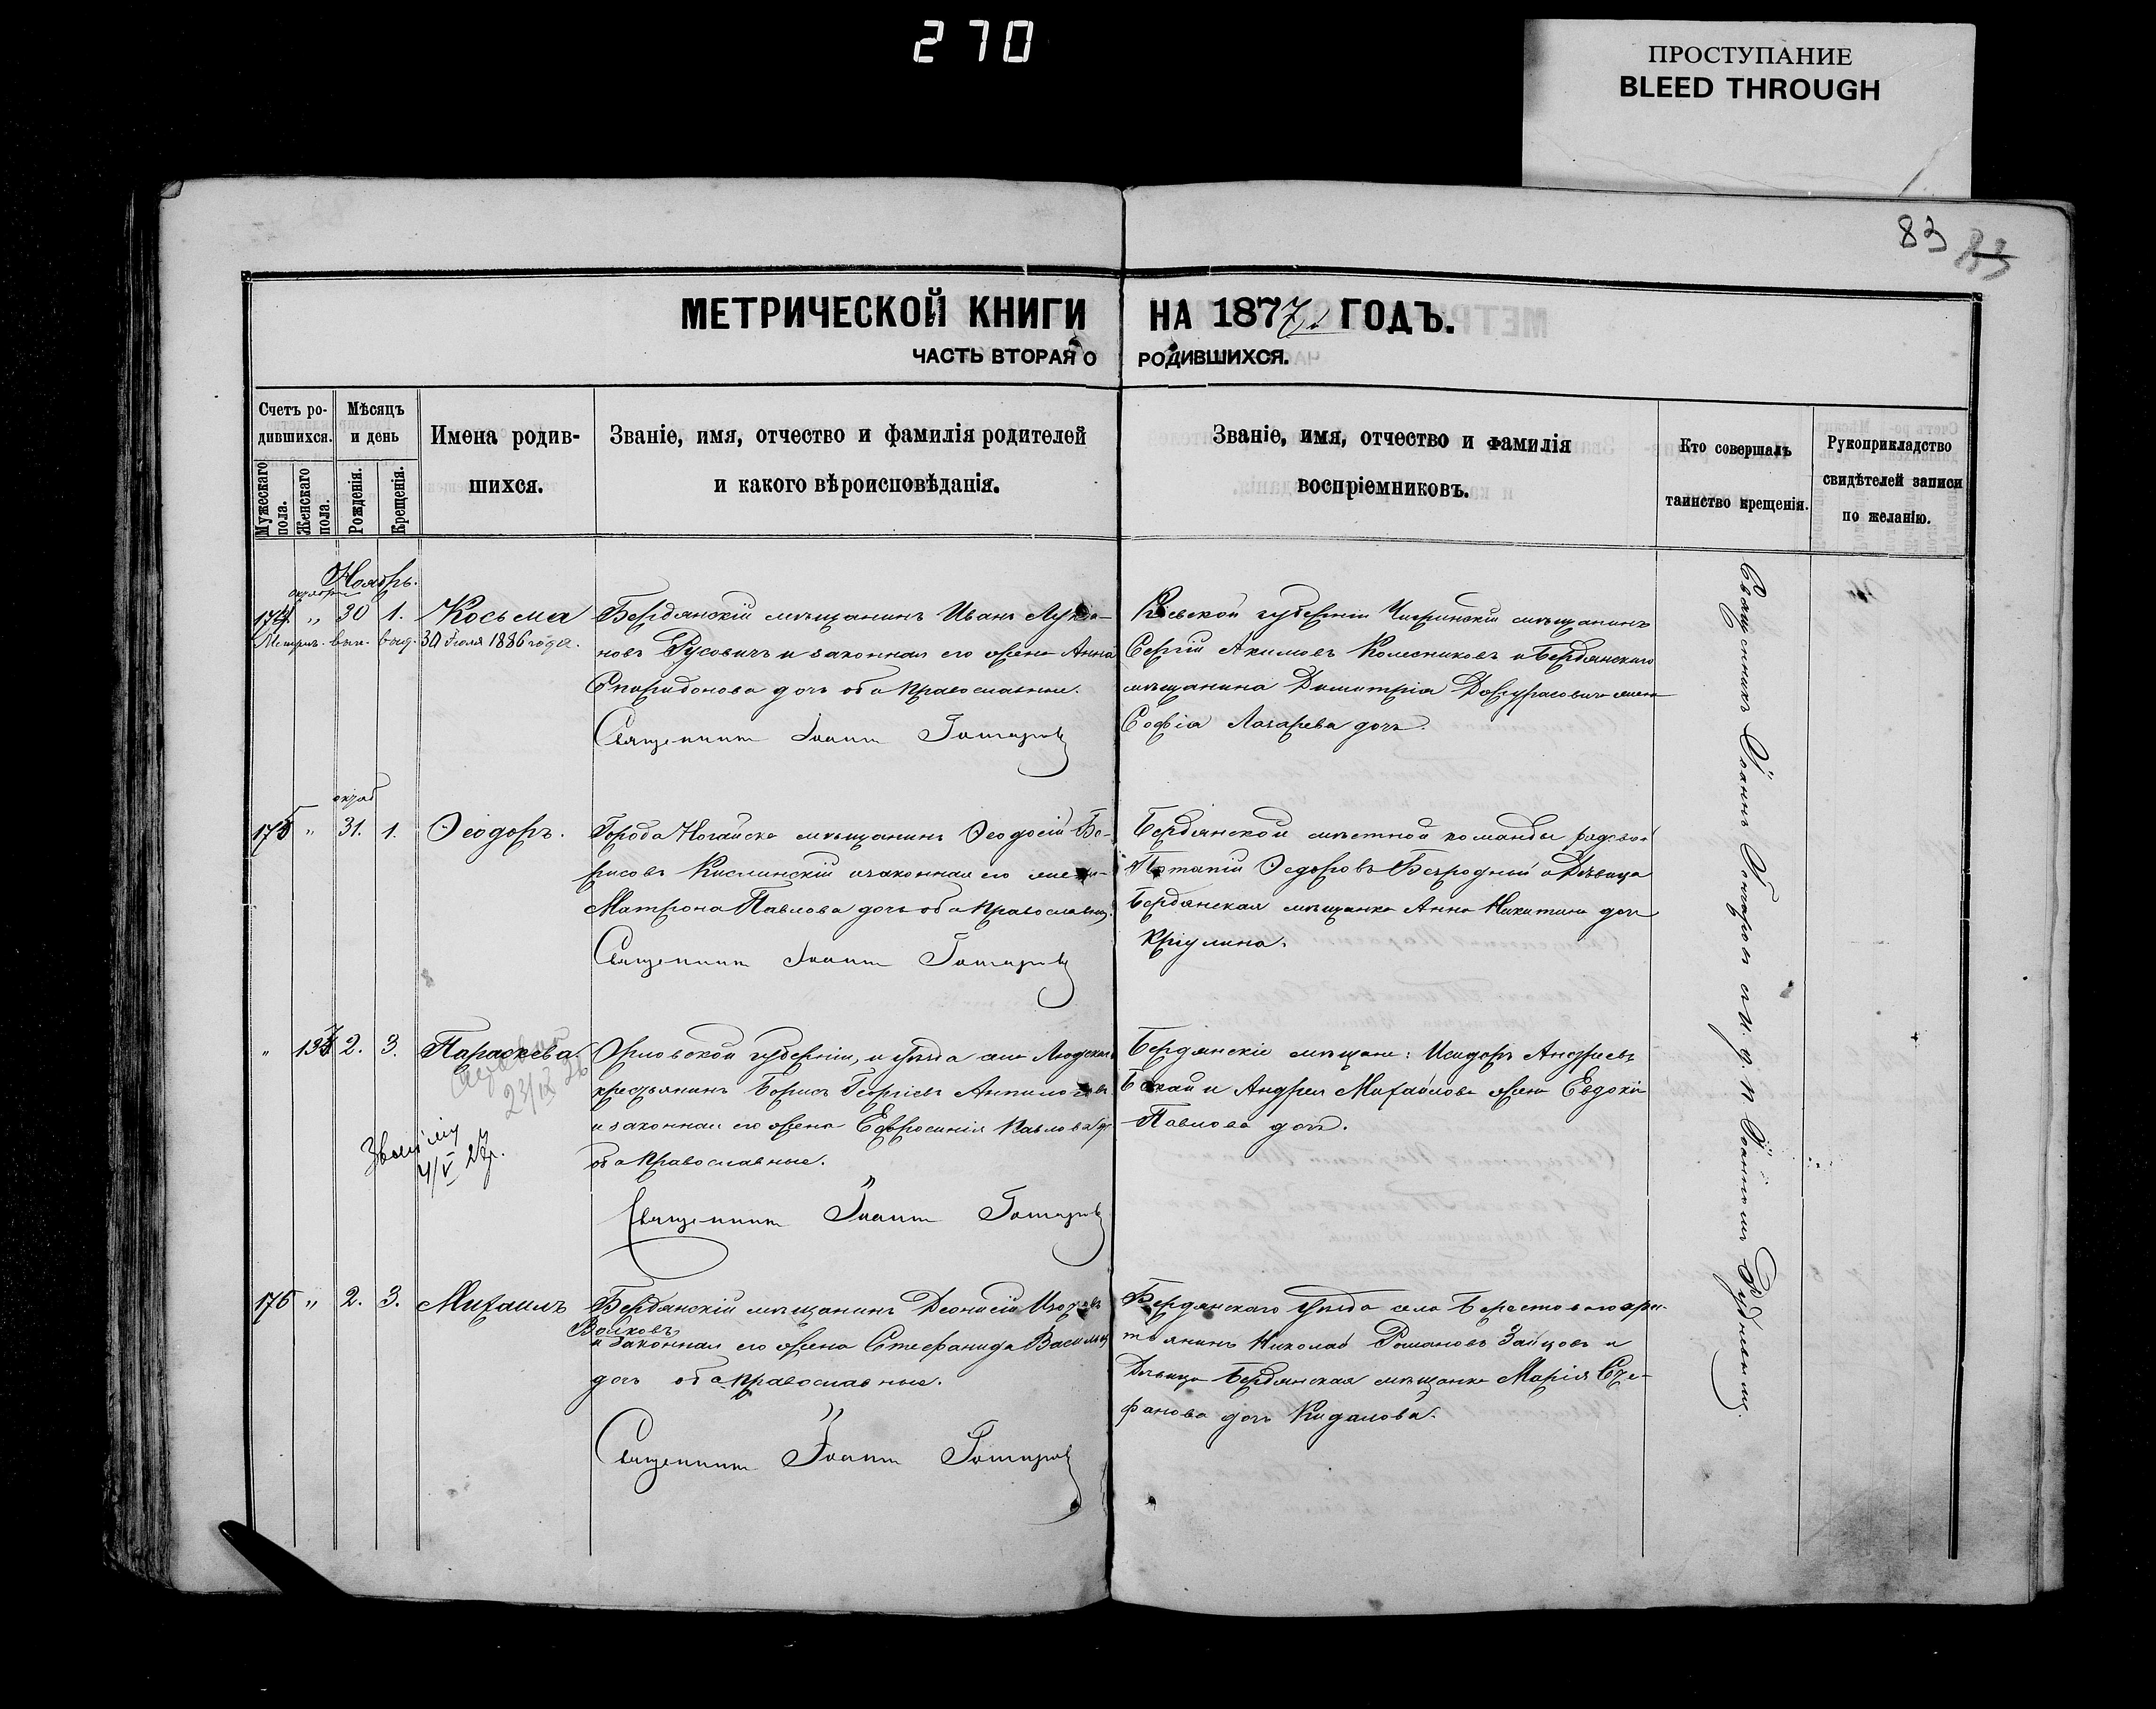 270
ПРОСТУПАНИЕ
BLEED THROUGH
83
МЕТРИЧЕСКОЙ КНИГИ НА 1877 ГОДЪ.
ЧАСТЬ ВТОРАЯ О РОДИВШИХСЯ.
Счетъ ро-
дившихся.
Мужескаго пола.
Женскаго пола.
Мѣсяцъ
и день
Рожденія.
Крещенія.
Имена родив-
шихся.
Званіе, имя, отчество и фамилія родителей
и какого вѣроисповѣданія.
Званіе, имя, отчество и фамилія
воспріемниковъ.
Кто совершалъ
таинство крещенія.
Рукоприкладство
свидѣтелей записи
по желанію.
Ноябрь.
174 " 30 1. Косьма
30 Іюля 1886 года.
Бердянскій мѣщанинъ Иванъ Лукья-
новъ Русовичъ и законная его жена Анна
Спиридонова дочь оба православные.
Священникъ Іоаннъ Гончаровъ
Кіевской губерніи Чигринскій мѣщанинъ
Сергій Акимовъ Колесниковъ и Бердянскаго
мѣщанина Димитрія жена
Софія Лазарева дочь.
175 " 31. 1. Ѳеодоръ.
Города Ногайска мѣщанинъ Ѳеодосій Бо-
рисовъ Кислинскій и законная его жена
Матрона Павлова дочь оба православны.
Священникъ Іоаннъ Гончаровъ
Бердянской мѣстной команды рядовой
Потапій Ѳедоровъ Безродный и Дѣвица
Бердянская мѣщанка Анна Никитина дочь
Кріулина.
" 2. 3. Параскева.
Орловской губерніи, и уѣзда села
крестьянинъ Борисъ Георгіевъ
и законная его жена Евфросинія Павлова
оба православные.
Священникъ Іоаннъ Гончаровъ
Бердянскіе мѣщане: Исидоръ Андреевъ
и Андрея Михайлова жена Евдокія
Павлова дочь.
176 " 2. 3. Михаилъ
Бердянскій мѣщанинъ Деонисій
Волковъ
и законная его жена Стефанида
дочь оба православные.
Священникъ Іоаннъ Гончаровъ
Бердянскаго уѣзда села Берестоваго кре-
стьянинъ Николай Романовъ Зайцовъ и
Дѣвица Бердянская мѣщанка Марія Сте-
фанова дочь Кидалова.
Священникъ Іоаннъ Гончаровъ